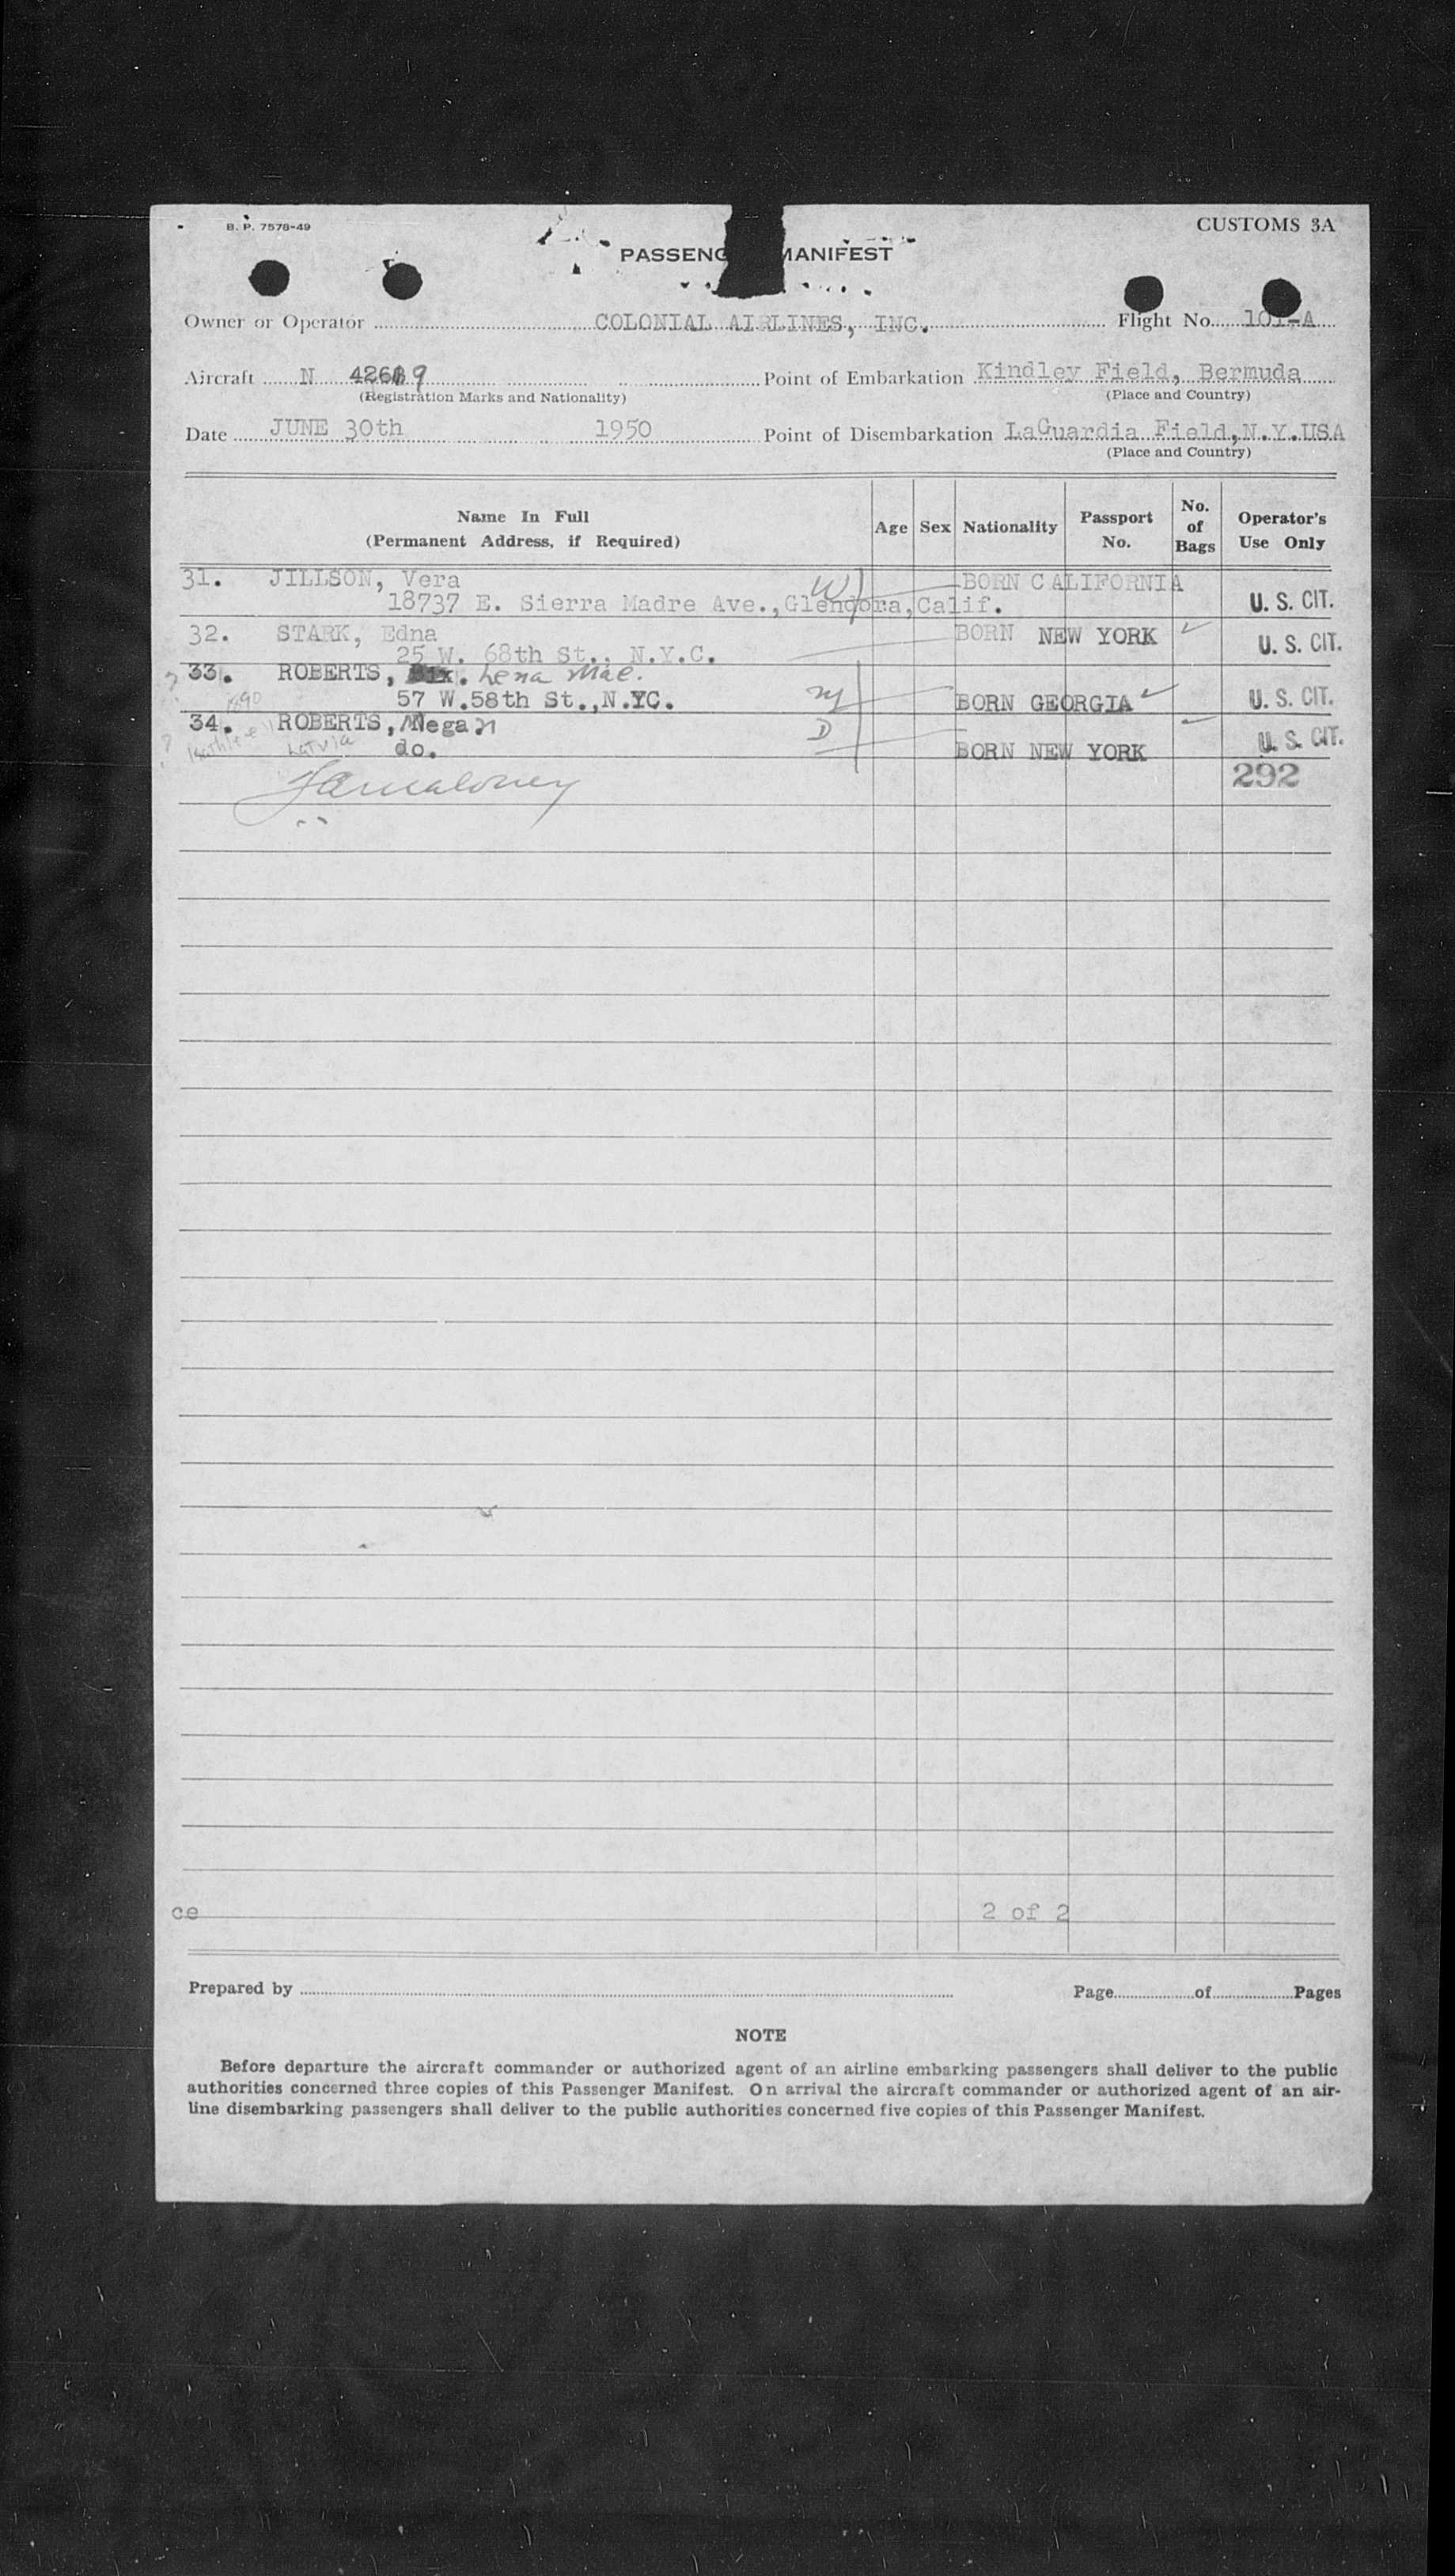 B. P. 7578-49
CUSTOMS 3A
PASSENG MANIFEST
Owner or Operator COLONIAL AIRLINES, INC. Flight No. 101-A
Aircraft N 42689 Point of Embarkation Kindley Field, Bermuda
(Registration Marks and Nationality) (Place and Country)
Date JUNE 30th 1950 Point of Disembarkation LaGuardia Field, N.Y. USA
(Place and Country)
Name In Full
(Permanent Address, if Required)
Age Sex Nationality Passport No. No. of Bags Operator's Use Only
31. JILLSON, Vera W BORN CALIFORNIA
18737 E. Sierra Madre Ave., Glendora, Calif. U. S. CIT.
32. STARK, Edna BORN NEW YORK U. S. CIT.
25 W. 68th St., N.Y.C.
33. ROBERTS, Lena Mae.
57 W.58th St.,N.YC. BORN GEORGIA U. S. CIT.
34. ROBERTS, Megan D
Latvia do. BORN NEW YORK U. S. CIT.
292
ce 2 of 2
Prepared by Page of Pages
NOTE
Before departure the aircraft commander or authorized agent of an airline embarking passengers shall deliver to the public
authorities concerned three copies of this Passenger Manifest. On arrival the aircraft commander or authorized agent of an air-
line disembarking passengers shall deliver to the public authorities concerned five copies of this Passenger Manifest.